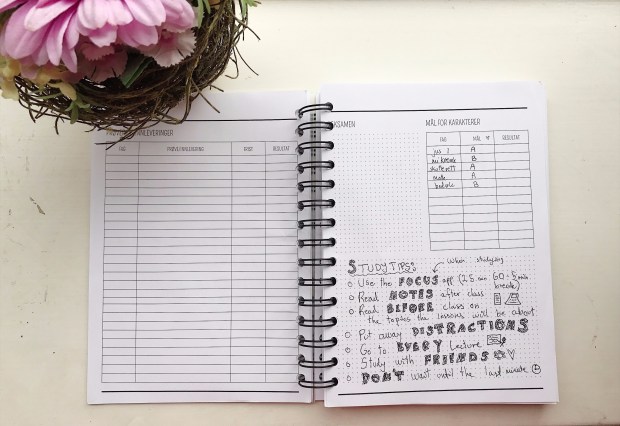 ANLEVERINGER
FAG
PRØVE/INNLEVERING
FRIST
RESULTAT
KSAMEN
MÅL FOR KARAKTERER
FAG MÅL RESULTAT
jus 2 A
B
skatterett A
A
B
STUDYTIPS: when studying
Use the FOCUS app (25 min, 60-5 min
break)
Read NOTES after class
Read BEFORE class on
the topics the lessons will be about
Put away DISTRACTIONS
Go to EVERY Lecture
Study with FRIENDS
DON'T wait until the last minute